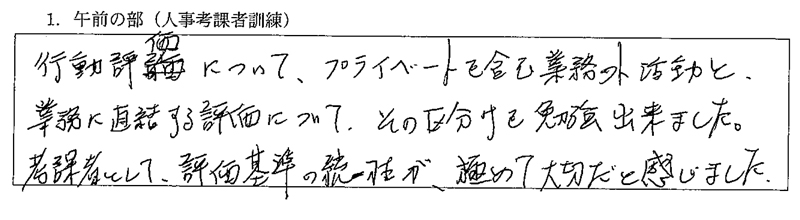 1. 午前の部（人事考課者訓練）
行動評価について、プライベートを含む業務外活動と、
業務に直結する評価について、その区分けを勉強出来ました。
考課者として、評価基準の統一性が、極めて大切だと感じました.